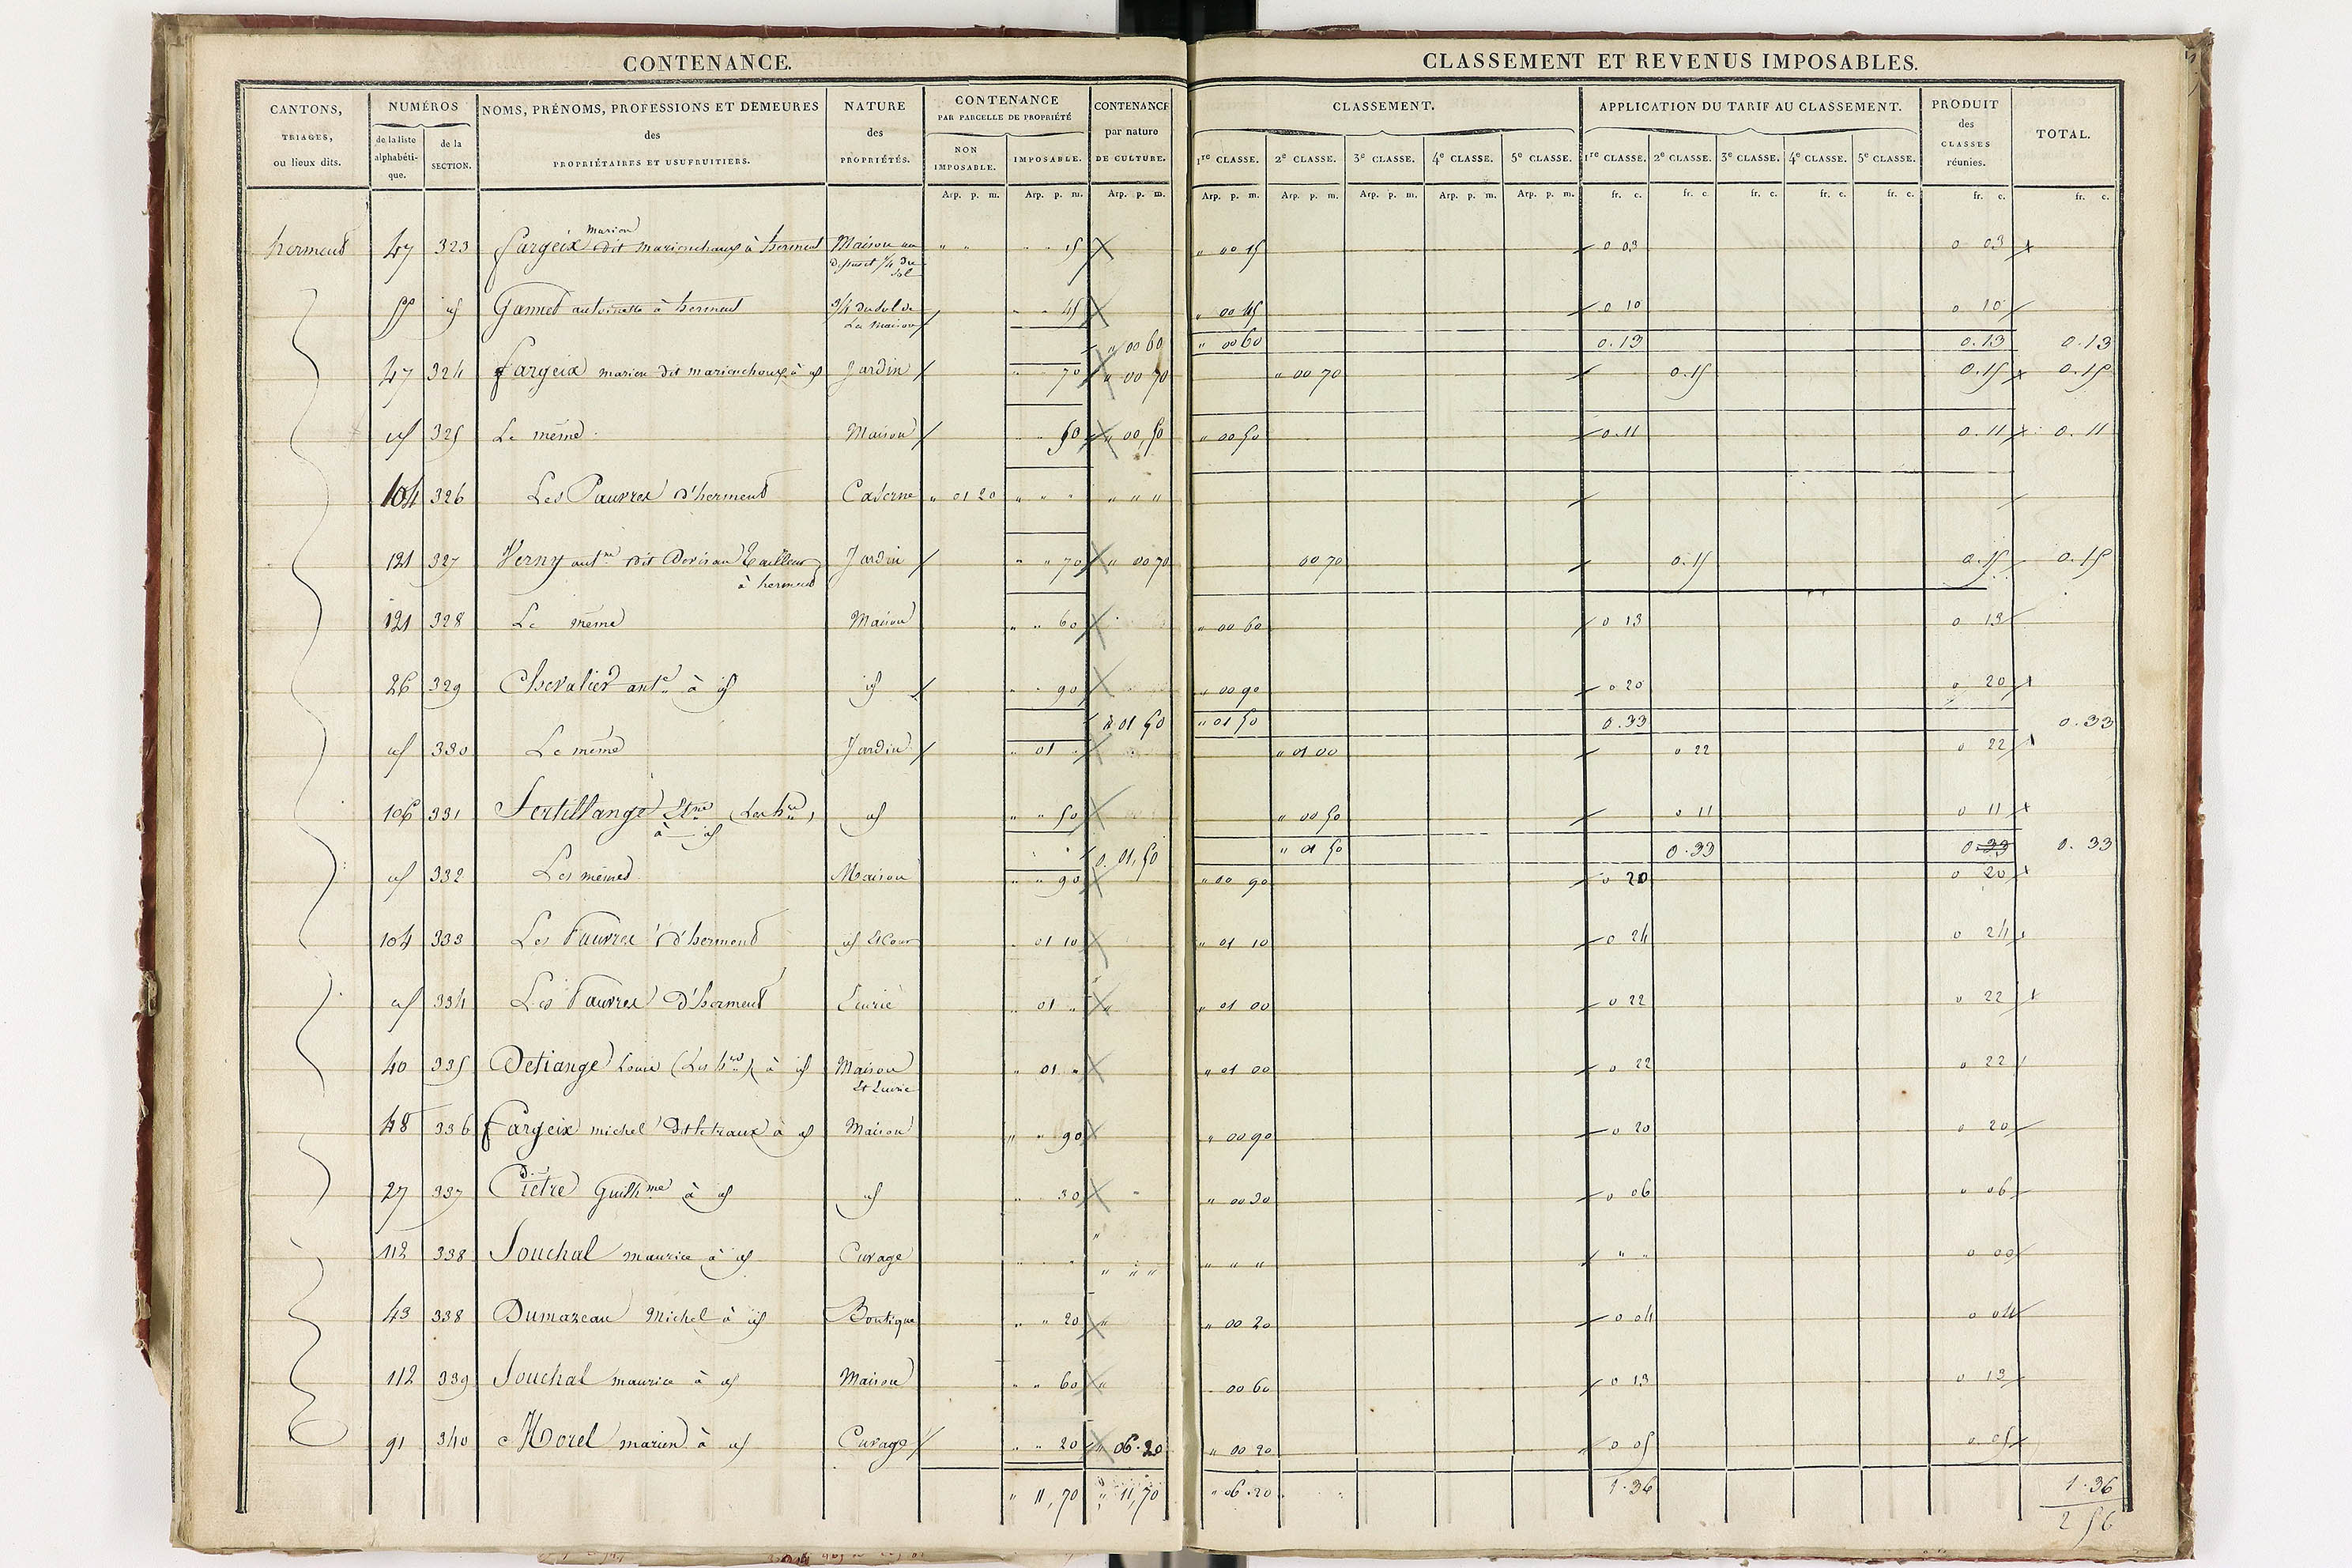 CONTENANCE.
CANTONS, TRIAGES, ou lieux dits.
NUMÉROS
de la liste alphabétique.
de la SECTION.
NOMS, PRÉNOMS, PROFESSIONS ET DEMEURES des PROPRIÉTAIRES ET USUFRUITIERS.
NATURE des PROPRIÉTÉS.
CONTENANCE PAR PARCELLE DE PROPRIÉTÉ
NON IMPOSABLE.
IMPOSABLE.
CONTENANCE par nature DE CULTURE.
Arp. p. m. Arp. p. m. Arp. p. m.
CLASSEMENT ET REVENUS IMPOSABLES.
CLASSEMENT.
1re CLASSE. 2e CLASSE. 3e CLASSE. 4e CLASSE. 5e CLASSE.
APPLICATION DU TARIF AU CLASSEMENT.
1re CLASSE. 2e CLASSE. 3e CLASSE. 4e CLASSE. 5e CLASSE.
PRODUIT des CLASSES réunies.
TOTAL.
Arp. p. m. Arp. p. m. Arp. p. m. Arp. p. m. Arp. p. m. fr. c. fr. c. fr. c. fr. c. fr. c. fr. c. fr. c.
herment 47 323 fargeix Marien dit marienchoux à herment Maison au 15 " 00 15 0 03 0 03
1/4 du sol
id Gannet antoinette à herment 3/4 du sol de 45 " 00 45 0 10 0 10
La Maison
" 00 60 " 00 60 0.13 0.13 0.13
47 324 fargeix marien dit marienchoux à id Jardin " " 70 " 00 70 " 00 70 0.15 0.15 0.15
id 325 Le même Maison 50 " 00,50 " 00 50 0.11 0.11 0.11
104 326 Les Pauvres d'herment Caserne " 01 20 " " " " " "
121 327 Verny antne dit Tailleur Jardin " " 70 " 00 70 00 70 0.15 0.15 0.15
à herment
121 328 Le même Maison " " 60 " 00 60 0 13 0 13
26 329 Chevalier ante à id id " " 90 " 00 90 0 20 0 20
" 01 50 " 01 50 0.33 0.33
id 330 Le même Jardin " 01 " " 01 00 0 22 0 22
106 331 Sertillange Etne (Les hers) id " " 50 " 00 50 0 11 0 11
à id
0. 01,50 " 01 50 0.33 0.33 0.33
id 332 Les mêmes Maison " " 90 " 00 90 0 20 0 20
104 333 Les Pauvres d'herment id et Cour " 01 10 " 01 10 0 24 0 24
id 334 Les Pauvres d'herment Ecurie " 01 " " 01 00 0 22 0 22
40 335 Detiange Louis (Les hers) à id Maison " 01 " " 01 00 0 22 0 22
et Ecurie
48 336 fargeix michel à id Maison " " 90 " 00 90 0 20 0 20
27 337 Guillme à id id " 30 " 00 30 0 06 " 06
112 338 Souchal maurice à id Cuvage " " " " " " " " 0 00
43 338 Dumazeau Michel à id Boutique " " 20 " 00 20 0 04 0 04
112 339 Souchal maurice à id Maison " " 60 00 60 0 13 0 13
91 340 Morel marien à id Cuvage " " 20 " 06.20 " 00 20 0 05 0 05
" 11,70 " 11,70 " 06.20 1.36 1.36
2 56